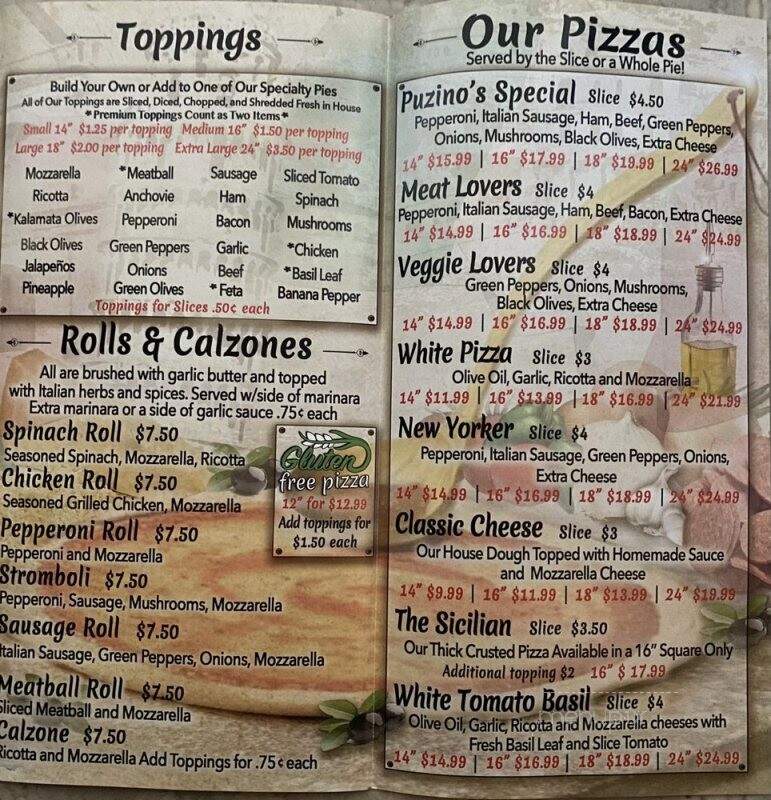 Toppings
Build Your Own or Add to One of Our Specialty Pies
All of Our Toppings are Sliced, Diced, Chopped, and Shredded Fresh in House
*Premium Toppings Count as Two Items*
Small 14" $1.25 per topping Medium 16" $1.50 per topping
Large 18" $2.00 per topping Extra Large 24" $3.50 per topping
Mozzarella *Meatball Sausage Sliced Tomato
Ricotta Anchovie Ham Spinach
*Kalamata Olives Pepperoni Bacon Mushrooms
Black Olives Green Peppers Garlic *Chicken
Jalapeños Onions Beef *Basil Leaf
Pineapple Green Olives *Feta Banana Pepper
Toppings for Slices .50¢ each
Rolls & Calzones
All are brushed with garlic butter and topped
with Italian herbs and spices. Served w/side of marinara
Extra marinara or a side of garlic sauce .75¢ each
Spinach Roll $7.50
Seasoned Spinach, Mozzarella, Ricotta
Chicken Roll $7.50
Seasoned Grilled Chicken, Mozzarella
Pepperoni Roll $7.50
Pepperoni and Mozzarella
Stromboli $7.50
Pepperoni, Sausage, Mushrooms, Mozzarella
Sausage Roll $7.50
Italian Sausage, Green Peppers, Onions, Mozzarella
Meatball Roll $7.50
Sliced Meatball and Mozzarella
Calzone $7.50
Ricotta and Mozzarella Add Toppings for .75¢ each
Gluten
free pizza
12" for $12.99
Add toppings for
$1.50 each
Our Pizzas
Served by the Slice or a Whole Pie!
Puzino's Special Slice $4.50
Pepperoni, Italian Sausage, Ham, Beef, Green Peppers,
Onions, Mushrooms, Black Olives, Extra Cheese
14" $15.99 | 16" $17.99 | 18" $19.99 | 24" $26.99
Meat Lovers Slice $4
Pepperoni, Italian Sausage, Ham, Beef, Bacon, Extra Cheese
14" $14.99 | 16" $16.99 | 18" $18.99 | 24" $24.99
Veggie Lovers Slice $4
Green Peppers, Onions, Mushrooms,
Black Olives, Extra Cheese
14" $14.99 | 16" $16.99 | 18" $18.99 | 24" $24.99
White Pizza Slice $3
Olive Oil, Garlic, Ricotta and Mozzarella
14" $11.99 | 16" $13.99 | 18" $16.99 | 24" $21.99
New Yorker Slice $4
Pepperoni, Italian Sausage, Green Peppers, Onions,
Extra Cheese
14" $14.99 | 16" $16.99 | 18" $18.99 | 24" $24.99
Classic Cheese Slice $3
Our House Dough Topped with Homemade Sauce
and Mozzarella Cheese
14" $9.99 | 16" $11.99 | 18" $13.99 | 24" $19.99
The Sicilian Slice $3.50
Our Thick Crusted Pizza Available in a 16" Square Only
Additional topping $2 16" $ 17.99
White Tomato Basil Slice $4
Olive Oil, Garlic, Ricotta and Mozzarella cheeses with
Fresh Basil Leaf and Slice Tomato
14" $14.99 | 16" $16.99 | 18" $18.99 | 24" $24.99